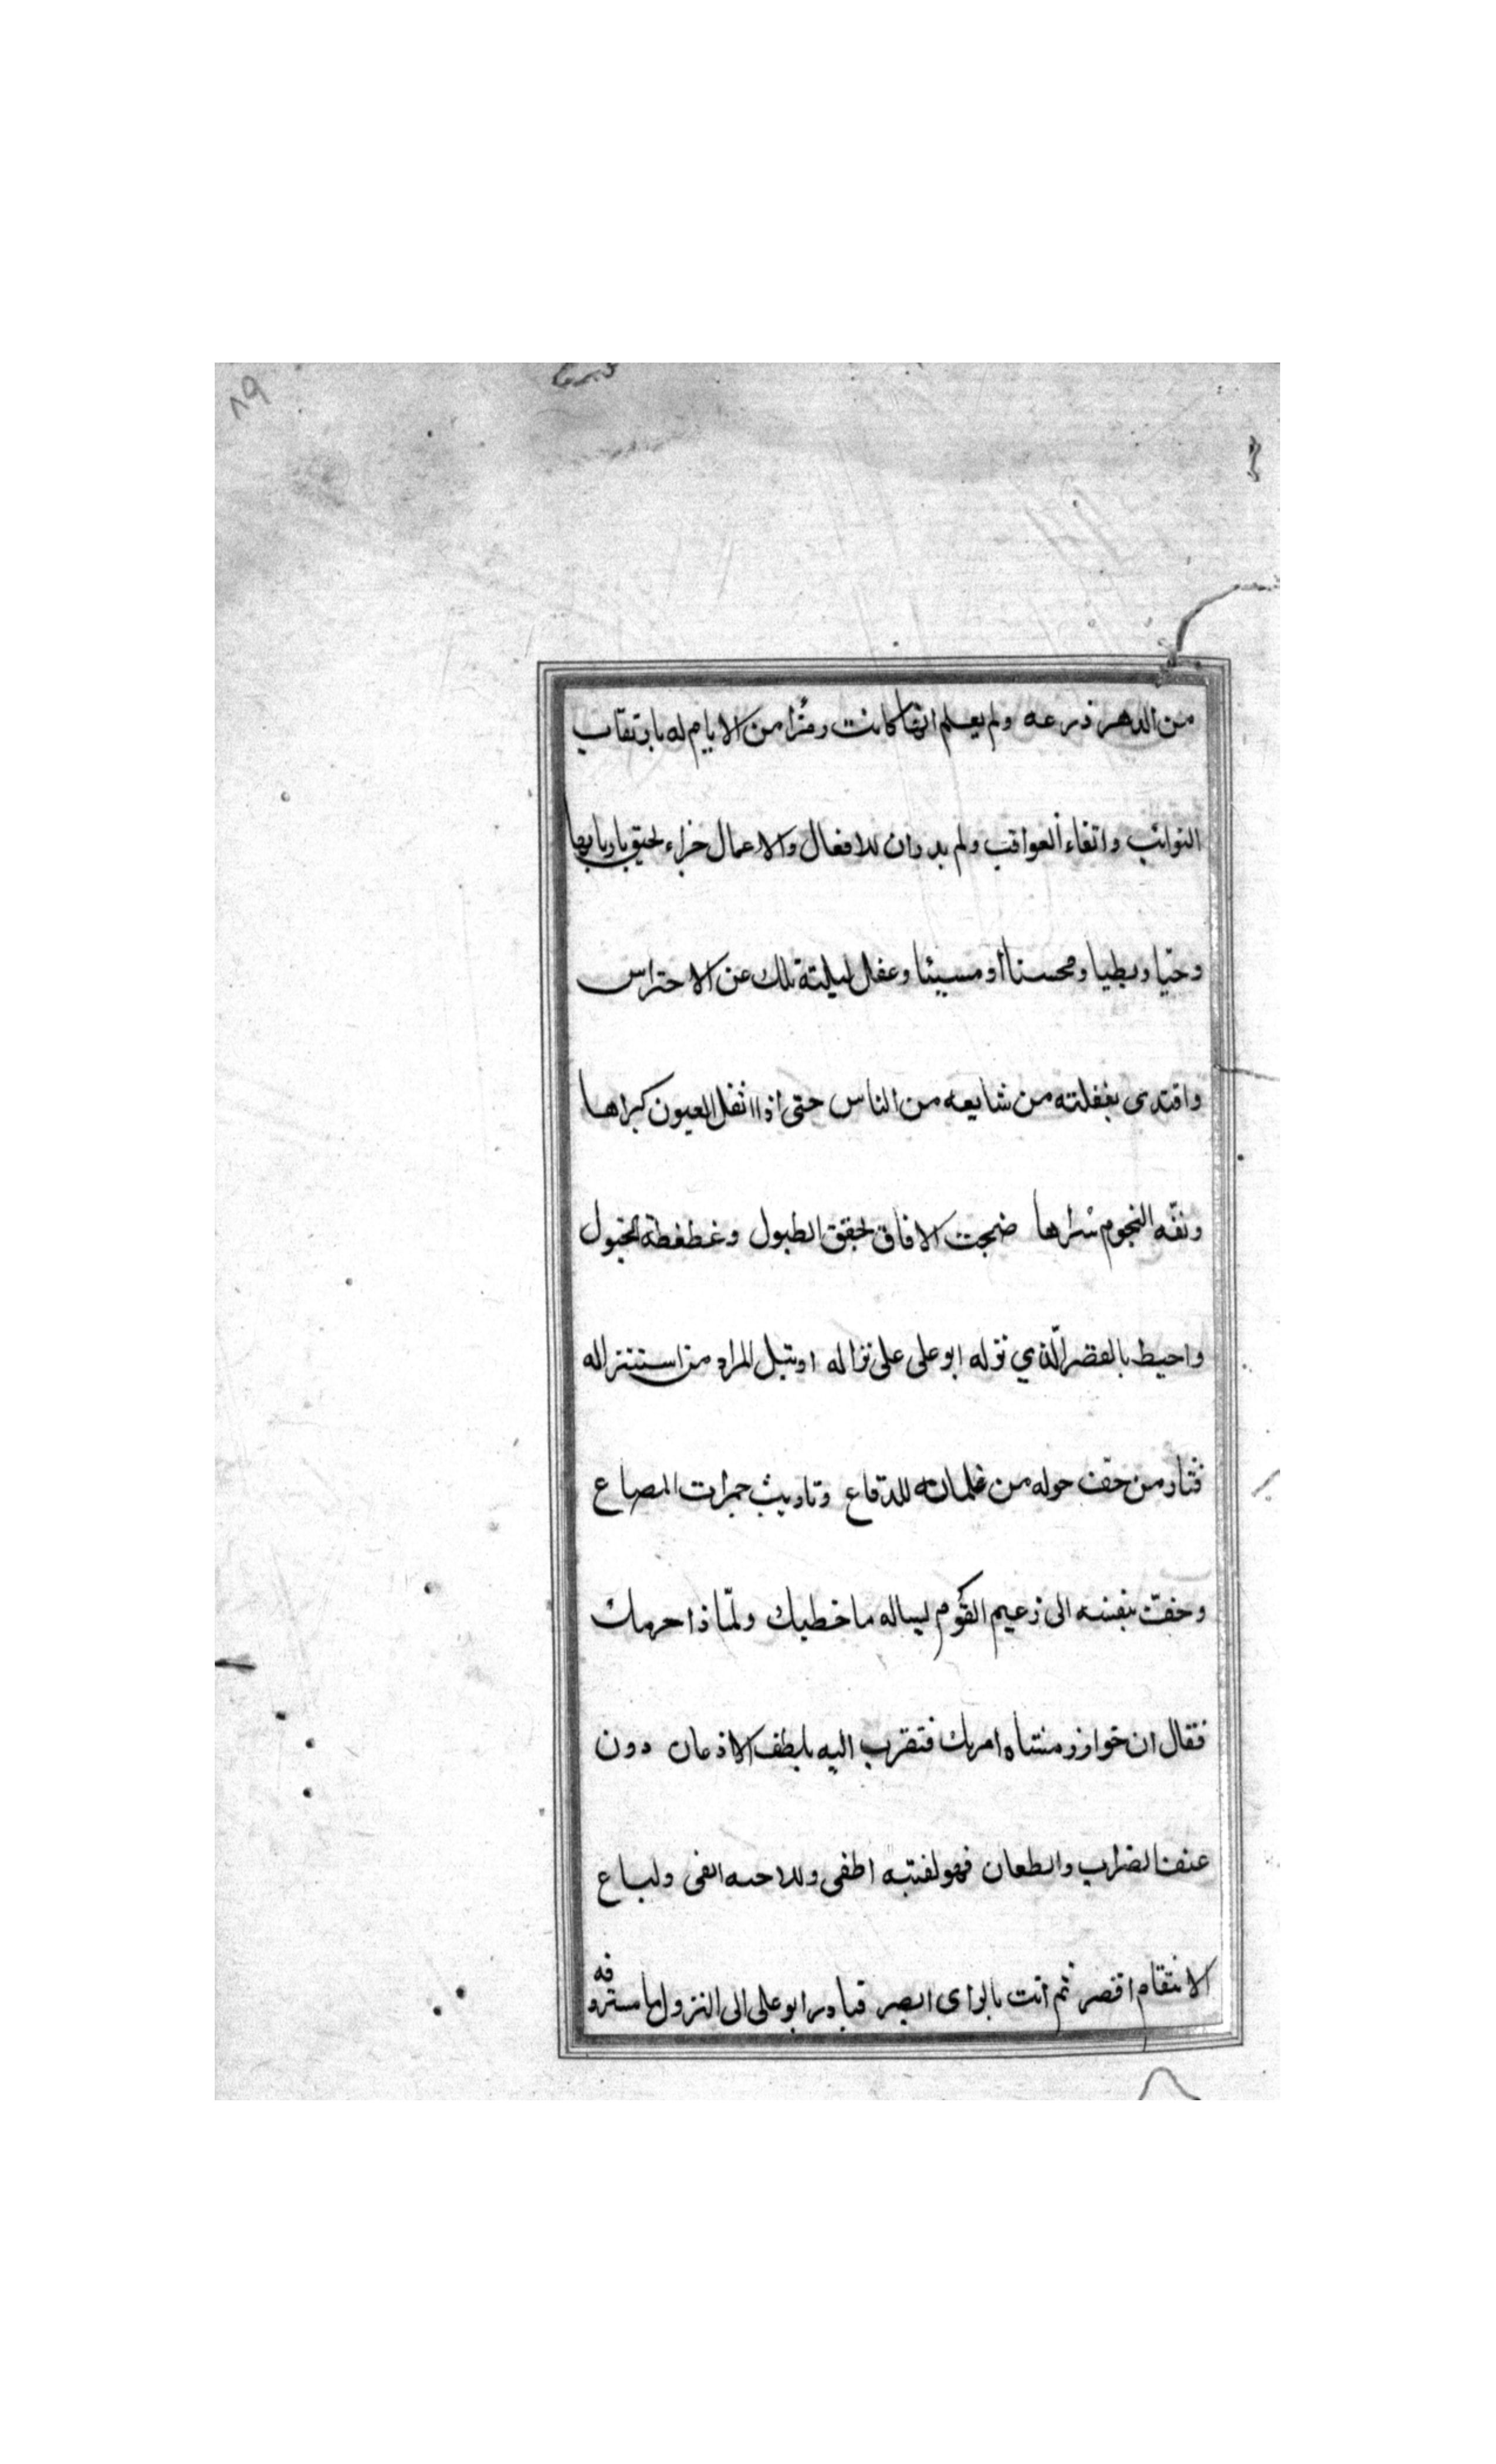 ٨٩
من الدهر ذرعه ولم يعلم انها كانت رمزا من الايام له بارتقاب
النوائب واتقاء العواقب ولم يدر ان للافعال والاعمال جزاء لحيق باربابها
وحيا وبطيا ومحسنا أو مسيئا وغفل ليلته تلك عن الاحتراس
واقتدى بغفلته من شايعه من الناس حتى اذا اثقل العيون كراها
ونفه النجوم سراها ضجت الافاق لخفق الطبول وغطغطة الخيول
واحيط بالقصر الذي نزله ابو على على نزاله او تبل المراد من استنزاله
فثار من حف حوله من غلمانه للدفاع وتاريث جمرات المصاع
وخف بنفسه الى زعيم القوم ليساله ما خطبك ولماذا حربك
فقال ان خوارزمشاه امرك فتقرب اليه بلطف الاذعان دون
عنف الضراب والطعان فهو لفتنته اطفى وللاحنه انفى ولباع
الانتقام اقصر ثم انت بالراى ابصر فبادر ابو على الى النزول